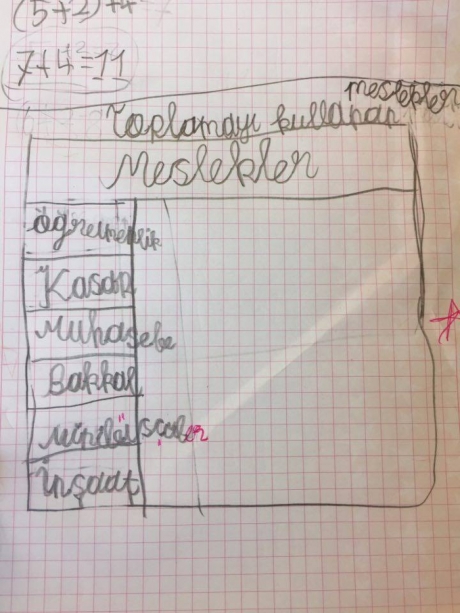 (5+2)+4
7+4=11
meslekler
Toplamayı kullanan
Meslekler
öğretmenlik
Kasap
Muhasebe
Bakkal
İnşaat